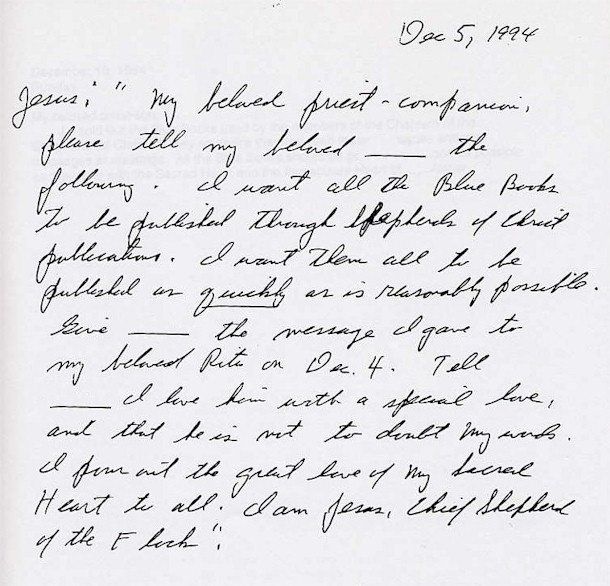 Dec 5, 1994
Jesus: " My beloved priest-companion,
please tell my beloved ____ the
following. I want all the Blue Books
to be published through Shepherds of Christ
publications. I want them all to be
published as quickly as is reasonably possible.
Give ____ the message I gave to
my beloved Rita on Dec. 4. Tell
____ I love him with a special love,
and that he is not to doubt My words.
I pour out the great love of My Sacred
Heart to all. I am Jesus, Chief Shepherd
of the Flock".